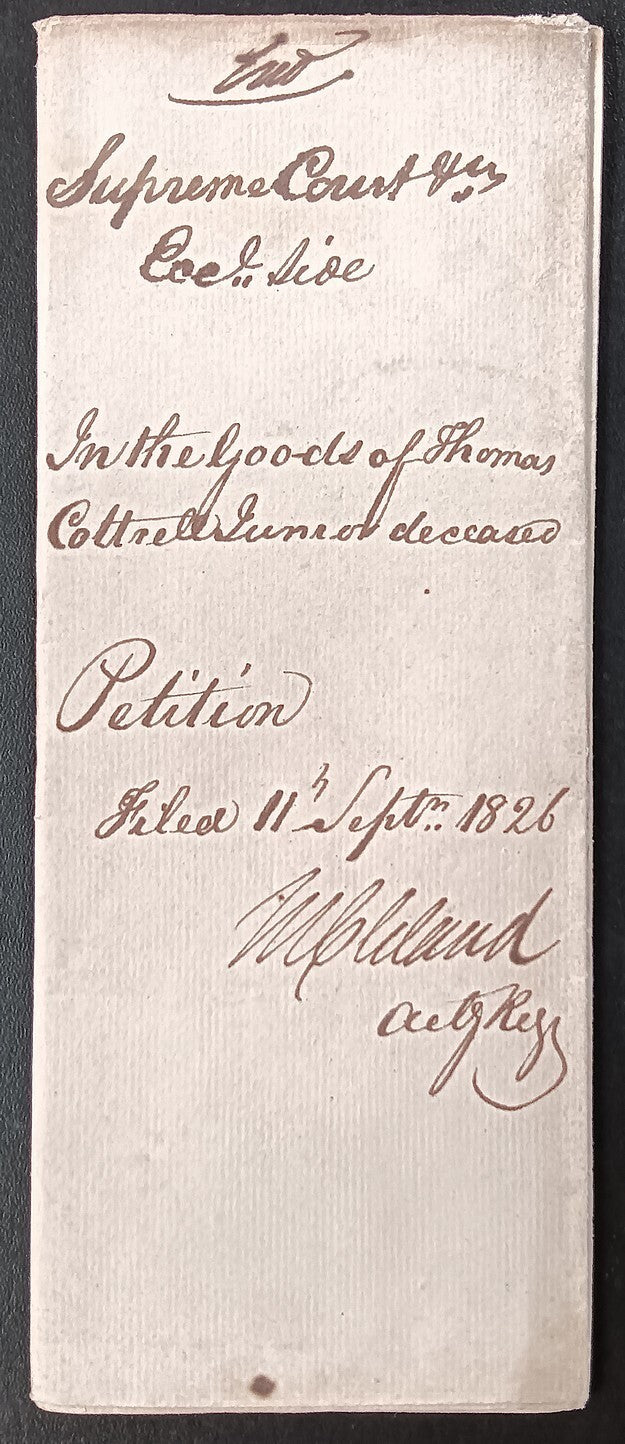 Supreme Court &c
Eccl. Side
In the Goods of Thomas
Cottrell Junior deceased
Petition
Filed 11th Septr. 1826
Actg Regr